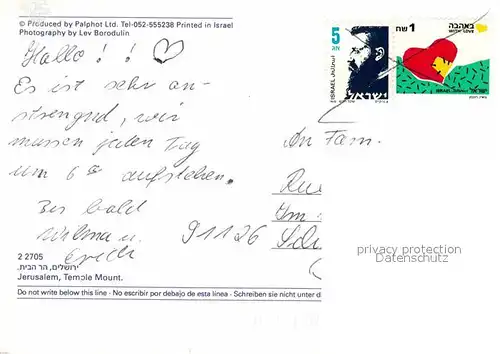 © Produced by Palphot Ltd. Tel-052-555238 Printed in Israel
Photography by Lev Borodulin
Hallo ! !
Es ist sehr an-
strengend, wir
müssen jeden Tag
um 6 aufstehen.
Bis bald
Wilma u.
Erich
5
אג
ISRAEL
ישראל
1 שח
באהבה
WITH LOVE
ISRAEL
ישראל
An Fam.
91126
privacy protection
Datenschutz
2 2705
ירושלים, הר הבית.
Jerusalem, Temple Mount.
Do not write below this line - No escribir por debajo de esta linea - Schreiben sie nicht unter d